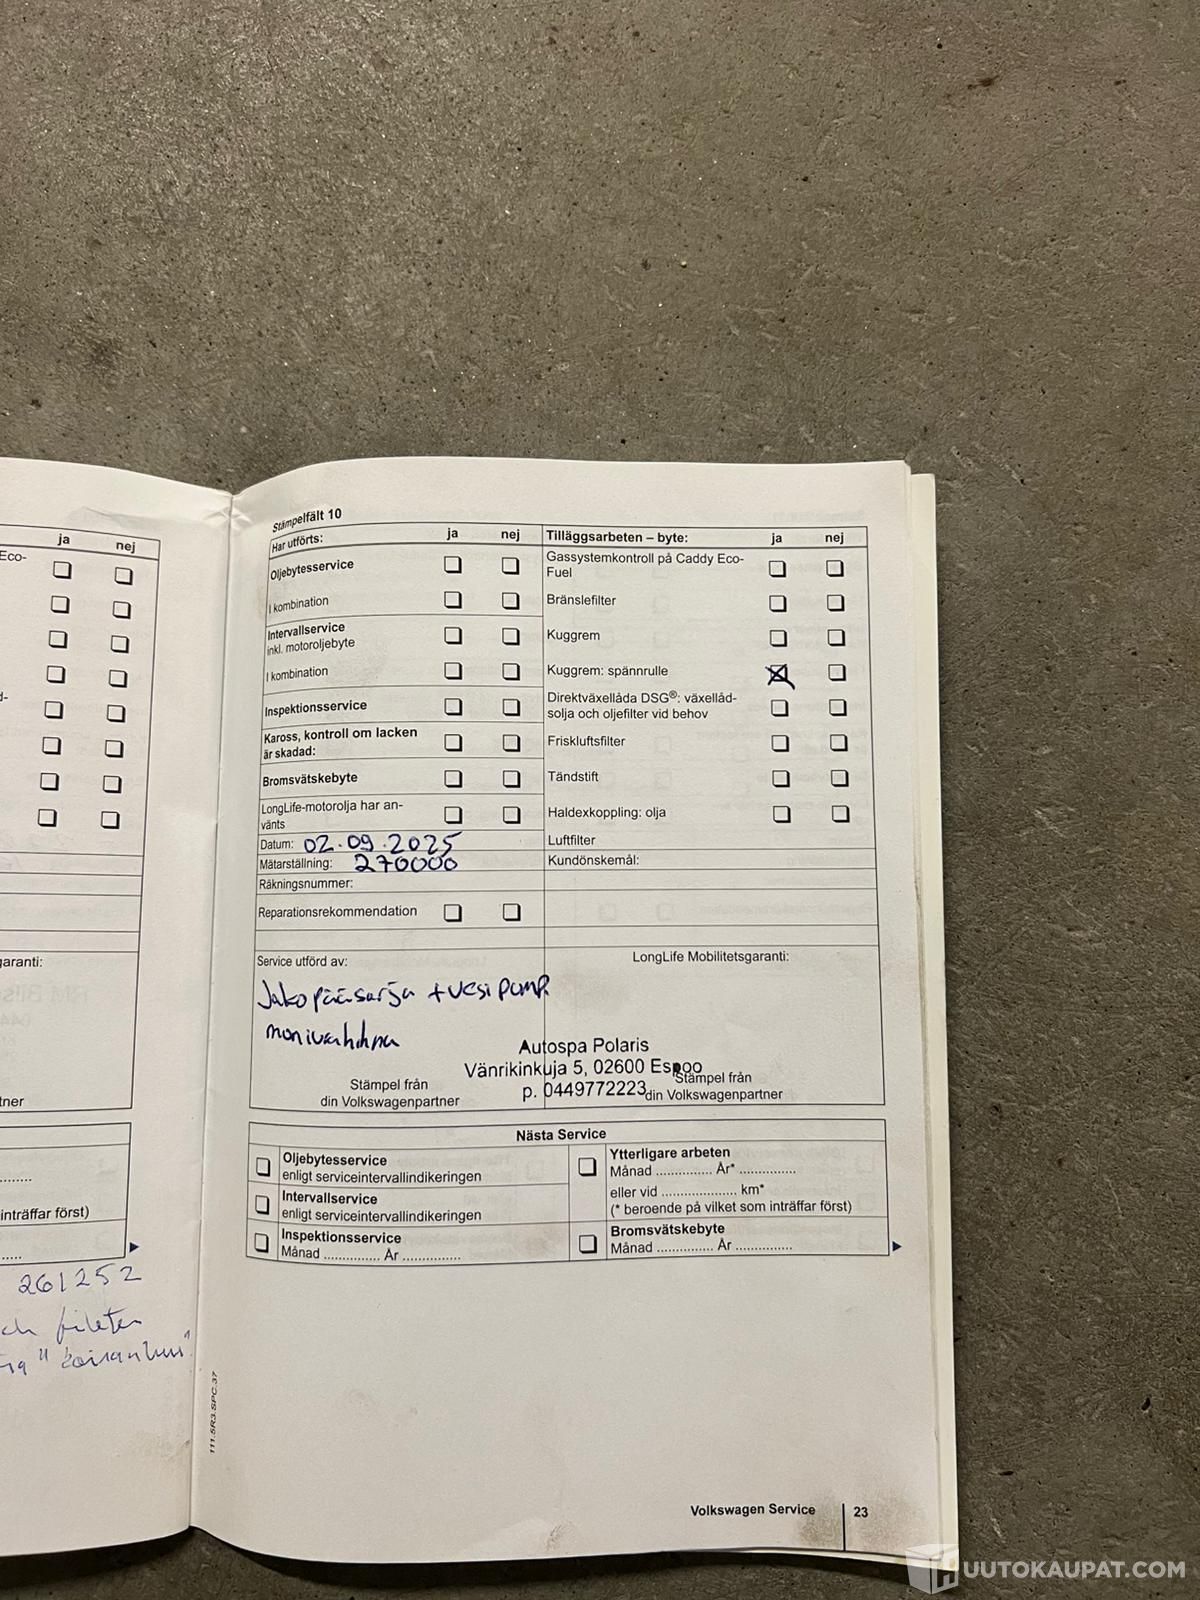 ja nej
Eco-
garanti:
tner
inträffar först)
261252
och fileter
111.5R3.SPC.37
Stämpelfält 10
Har utförts: ja nej
Oljebytesservice
I kombination
Intervallservice
inkl. motoroljebyte
I kombination
Inspektionsservice
Kaross, kontroll om lacken
är skadad:
Bromsvätskebyte
LongLife-motorolja har an-
vänts
Datum: 02.09.2025
Mätarställning: 270000
Räkningsnummer:
Reparationsrekommendation
Tilläggsarbeten – byte: ja nej
Gassystemkontroll på Caddy Eco-
Fuel
Bränslefilter
Kuggrem
Kuggrem: spännrulle
Direktväxellåda DSG®: växellåd-
solja och oljefilter vid behov
Friskluftsfilter
Tändstift
Haldexkoppling: olja
Luftfilter
Kundönskemål:
Service utförd av:
LongLife Mobilitetsgaranti:
Jakopääsarja + vesipump
monivahihna
Autospa Polaris
Vänrikinkuja 5, 02600 Espoo
p. 0449772223
Stämpel från
din Volkswagenpartner
Stämpel från
din Volkswagenpartner
Nästa Service
Oljebytesservice
enligt serviceintervallindikeringen
Intervallservice
enligt serviceintervallindikeringen
Inspektionsservice
Månad .............. År ..............
Ytterligare arbeten
Månad .............. År* ..............
eller vid .................... km*
(* beroende på vilket som inträffar först)
Bromsvätskebyte
Månad .............. År ..............
Volkswagen Service 23
UUTOKAUPAT.COM